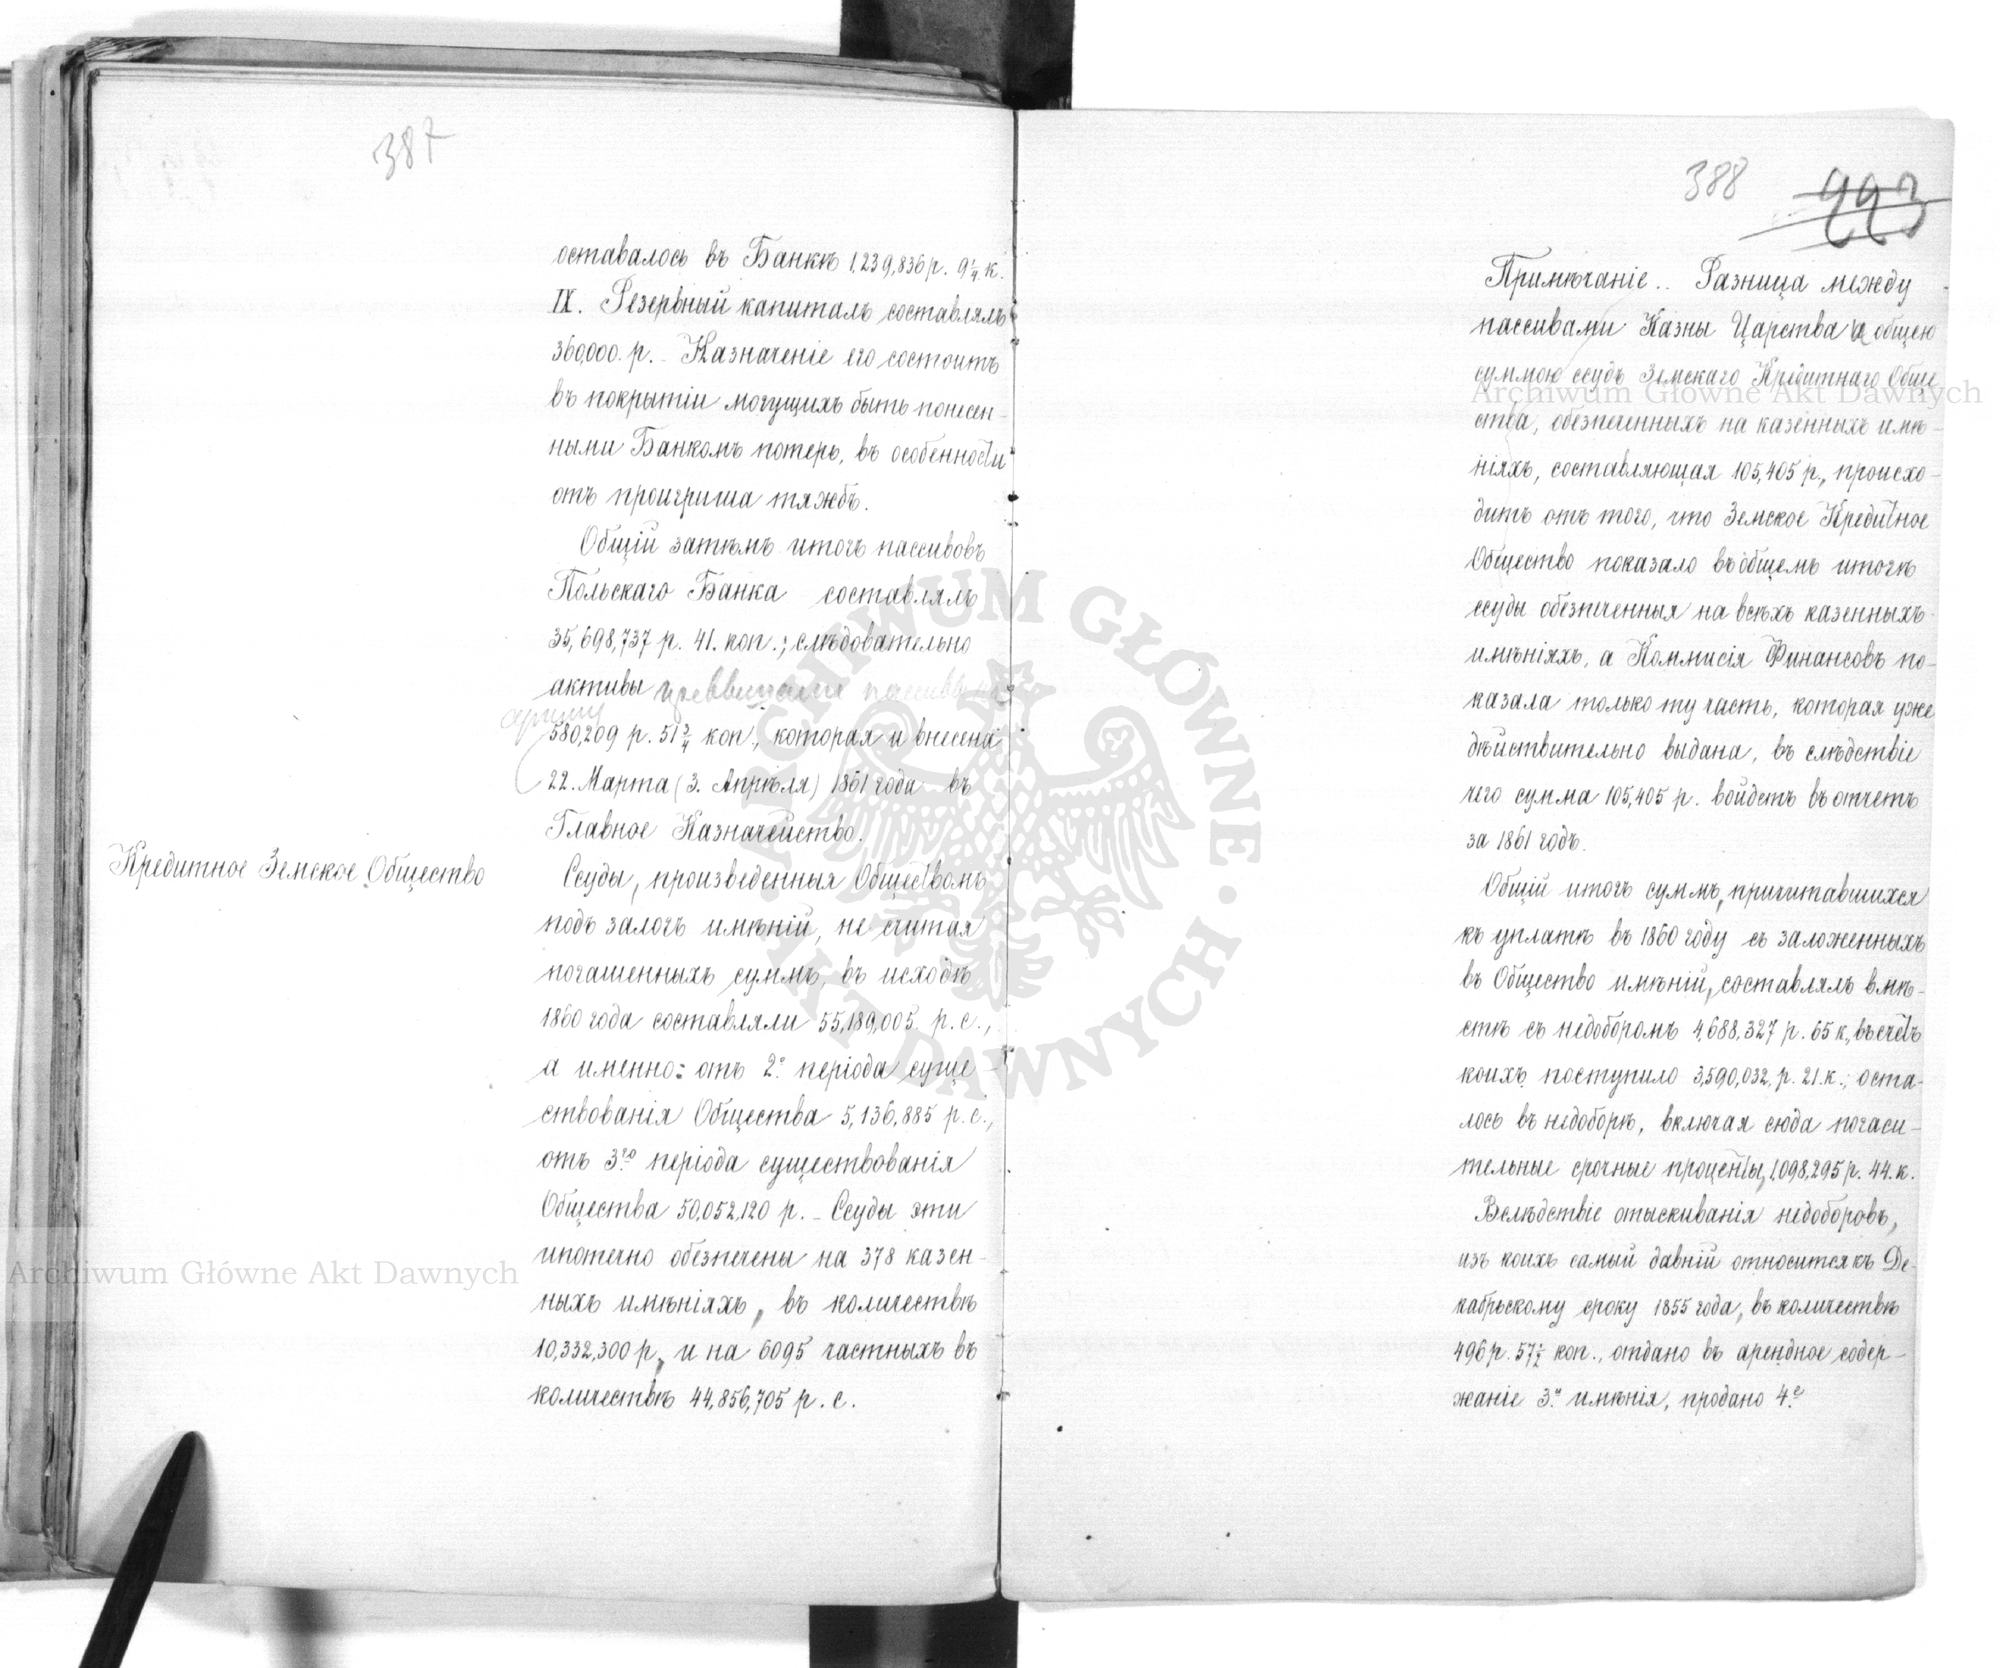 387
оставалось въ Банкѣ 1,239,836 р. 9¼ к.
IX. Резервный капиталъ составлялъ
360,000. р. – Назначеніе его состоитъ
въ покрытіи могущихъ быть понесен-
ными Банкомъ потерь, въ особенности
отъ проигрыша тяжбъ.
Общій затѣмъ итогъ пассивовъ
Польскаго Банка составлялъ
35,698,737 р. 41. коп.; слѣдовательно
активы превышали пассивы на
сумму
580,209 р. 51¾ коп., которая и внесена
22. Марта (3. Апрѣля) 1861 года въ
Главное Казначейство.
Кредитное Земское Общество
Ссуды, произведенныя Обществомъ
подъ залогъ имѣній, не считая
погашенныхъ суммъ, въ исходѣ
1860 года составляли 55,189,005 р. с.,
а именно: отъ 2º періода суще-
ствованія Общества 5,136,885 р. с.,
отъ 3го періода существованія
Общества 50,052,120 р. – Ссуды эти
ипотечно обезпечены на 378 казен-
ныхъ имѣніяхъ, въ количествѣ
10,332,300 р., и на 6095 частныхъ въ
количествѣ 44,856,705 р. с.
388
993
Примѣчаніе.. Разница между
пассивами Казны Царства и общею
суммою ссудъ Земскаго Кредитнаго Обще
ства, обезпеченныхъ на казенныхъ имѣ-
ніяхъ, составляющая 105,405 р., происхо-
дитъ отъ того, что Земское Кредитное
Общество показало въ общемъ итогѣ
ссуды обезпеченныя на всѣхъ казенныхъ
имѣніяхъ, а Коммисія Финансовъ по-
казала только ту часть, которая уже
дѣйствительно выдана, въ слѣдствіе
чего сумма 105,405 р. войдетъ въ отчетъ
за 1861 годъ.
Общій итогъ суммъ, причитавшихся
къ уплатѣ въ 1860 году съ заложенныхъ
въ Общество имѣній, составлялъ вмѣ-
стѣ съ недоборомъ 4,688,327 р. 65 к., въ счетъ
коихъ поступило 3,590,032, р. 21. к.; оста-
лось въ недоборѣ, включая сюда погаси-
тельные срочные проценты, 1,098,295 р. 44. к.
Вслѣдствіе отыскиванія недоборовъ,
изъ коихъ самый давній относится къ Де-
кабрьскому сроку 1855 года, въ количествѣ
496 р. 57½ коп., отдано въ арендное содер-
жаніе 3.и имѣнія, продано 4.е
Archiwum Główne Akt Dawnych
Archiwum Główne Akt Dawnych
ARCHIWUM GŁÓWNE · AKT DAWNYCH ·